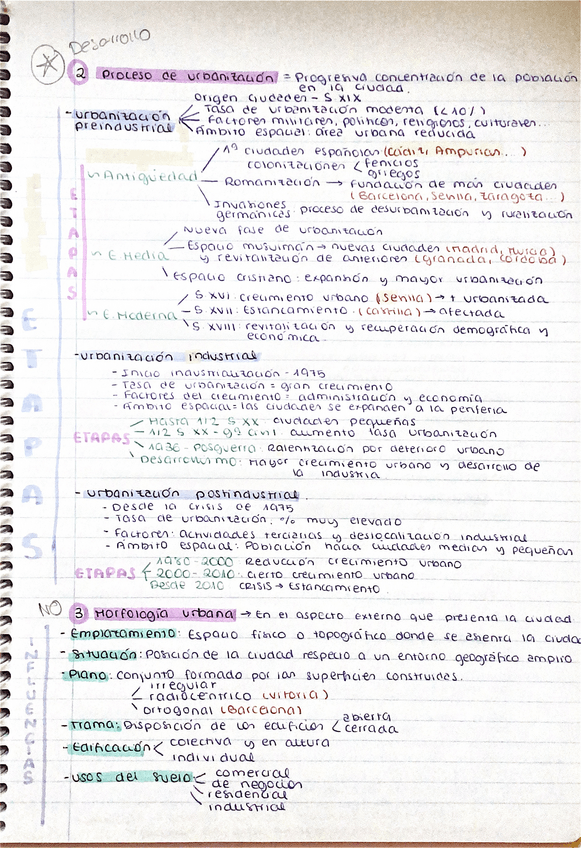 Desarrollo
2 Proceso de urbanización = Progresiva concentración de la población
en la ciudad.
- Urbanización preindustrial
Origen ciudades - S XIX
Tasa de urbanización modesta (<10%)
Factores militares, políticos, religiosos, culturales...
Ámbito espacial: área urbana reducida
ETAPAS
ETAPAS
~ Antigüedad
1ª ciudades españolas (Cádiz, Ampurias...)
colonizaciones < fenicios
griegos
Romanización → Fundación de más ciudades
(Barcelona, Sevilla, Zaragoza...)
Invasiones
germánicas: proceso de desurbanización y ruralización
~ E. Media
Nueva fase de urbanización
Espacio musulmán → nuevas ciudades (Madrid, Murcia)
y revitalización de anteriores (Granada, Córdoba)
Espacio cristiano: expansión y mayor urbanización
~ E. Moderna
S XVI: crecimiento urbano (Sevilla) → + urbanizada
S XVII: Estancamiento. (Castilla) → afectada
S XVIII: revitalización y recuperación demográfica y
económica.
- Urbanización industrial
- Inicio industrialización - 1975
- Tasa de urbanización = gran crecimiento
- Factores del crecimiento = administración y economía
- Ámbito espacial = las ciudades se expanden a la periferia
ETAPAS
Hasta 1/2 S XX ciudades pequeñas
1/2 S XX - gª civil aumento tasa urbanización
1936 - Posguerra: Ralentización por deterioro urbano
Desarrollismo: Mayor crecimiento urbano y desarrollo de
la industria
- Urbanización postindustrial.
- Desde la crisis de 1975
- Tasa de urbanización: % muy elevado
- Factores: Actividades terciarias y deslocalización industrial
- Ámbito espacial: Población hacia ciudades medias y pequeñas
ETAPAS
1980-2000 Reducción crecimiento urbano
2000-2010: cierto crecimiento urbano
Desde 2010 CRISIS → Estancamiento.
NO
3 Morfología urbana → En el aspecto externo que presenta la ciudad
INFLUENCIAS
- Emplazamiento: Espacio físico o topográfico donde se asienta la ciudad
- Situación: Posición de la ciudad respecto a un entorno geográfico amplio
- Plano: conjunto formado por las superficies construidas.
irregular
radiocéntrico (Vitoria)
ortogonal (Barcelona)
- Trama: Disposición de los edificios < abierta
cerrada
- Edificación < colectiva y en altura
individual
- Usos del suelo < comercial
de negocios
residencial
industrial